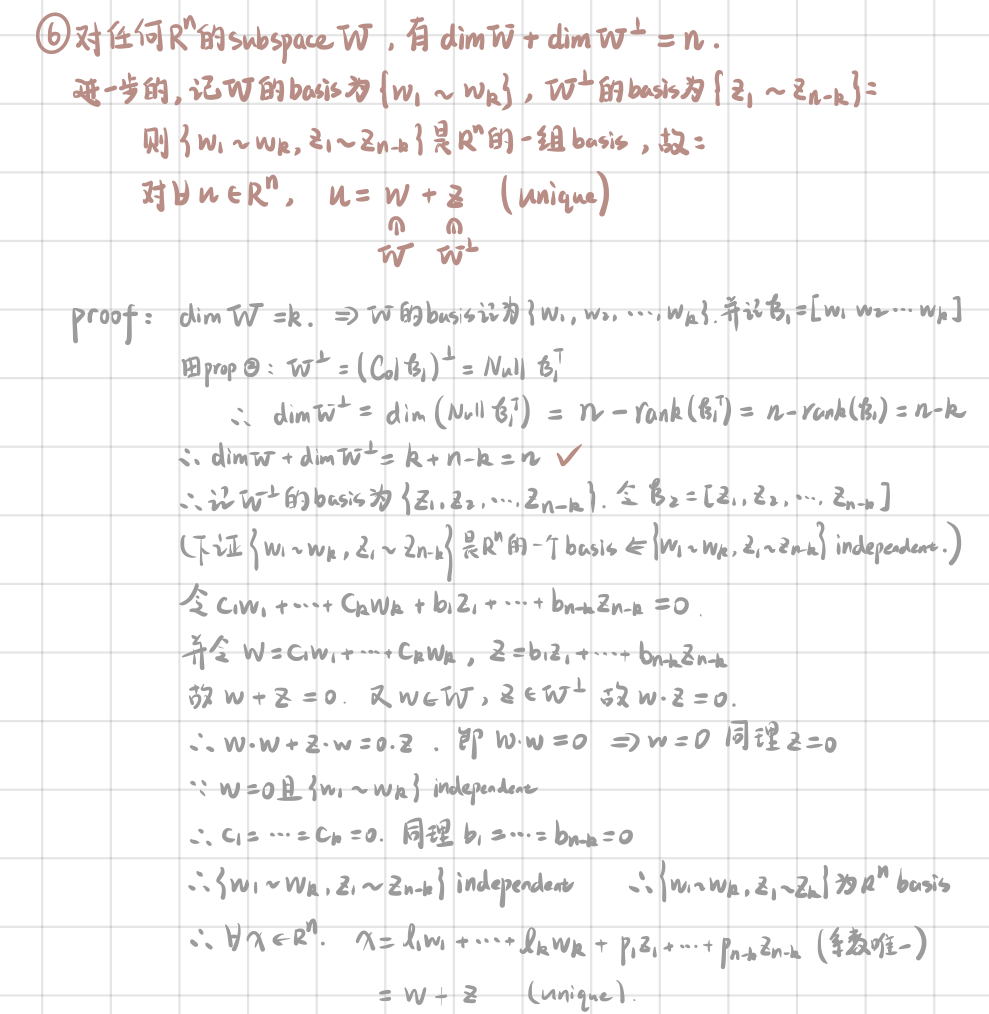 ⑥ 对任何Rⁿ的subspace W，有 dim W + dim W^⊥ = n.
进一步的，记W的basis为{w₁ ~ w_k}，W^⊥的basis为{z₁ ~ z_{n-k}}：
则{w₁ ~ w_k, z₁ ~ z_{n-k}}是Rⁿ的一组basis，故：
对∀u∈Rⁿ， u = w + z (unique)
⋒ ⋒
W W^⊥
proof： dim W = k. ⇒ W的basis记为{w₁, w₂, ⋯, w_k}. 并记β₁=[w₁ w₂ ⋯ w_k]
由prop ②：W^⊥ = (Col β₁)^⊥ = Null β₁^T
∴ dim W^⊥ = dim (Null β₁^T) = n - rank(β₁^T) = n - rank(β₁) = n-k
∴ dim W + dim W^⊥ = k + n-k = n ✓
∴ 记W^⊥的basis为{z₁, z₂, ⋯, z_{n-k}}. 令β₂=[z₁, z₂, ⋯, z_{n-k}]
(下证{w₁ ~ w_k, z₁ ~ z_{n-k}}是Rⁿ的一个basis ⇐ {w₁ ~ w_k, z₁ ~ z_{n-k}} independent.)
令 c₁w₁ + ⋯ + c_kw_k + b₁z₁ + ⋯ + b_{n-k}z_{n-k} = 0.
并令 w = c₁w₁ + ⋯ + c_kw_k, z = b₁z₁ + ⋯ + b_{n-k}z_{n-k}
故 w + z = 0. 又 w∈W, z∈W^⊥ 故 w·z = 0.
∴ w·w + z·w = 0·z. 即 w·w = 0 ⇒ w = 0 同理 z = 0
∵ w = 0 且 {w₁ ~ w_k} independent
∴ c₁ = ⋯ = c_k = 0. 同理 b₁ = ⋯ = b_{n-k} = 0
∴ {w₁ ~ w_k, z₁ ~ z_{n-k}} independent ∴ {w₁ ~ w_k, z₁ ~ z_k} 为Rⁿ basis
∴ ∀x∈Rⁿ. x = l₁w₁ + ⋯ + l_kw_k + p₁z₁ + ⋯ + p_{n-k}z_{n-k} (系数唯一)
= w + z (unique).